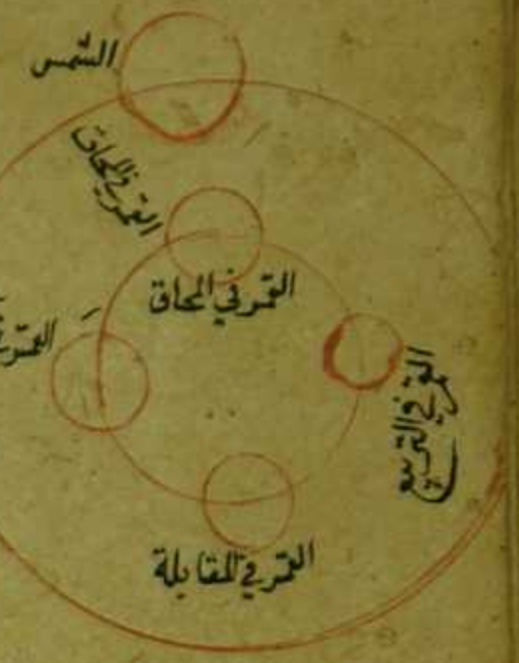 الشمس
القمر في المحاق
القمر في المحاق
القمر
القمر في التربيع
القمر في المقابلة